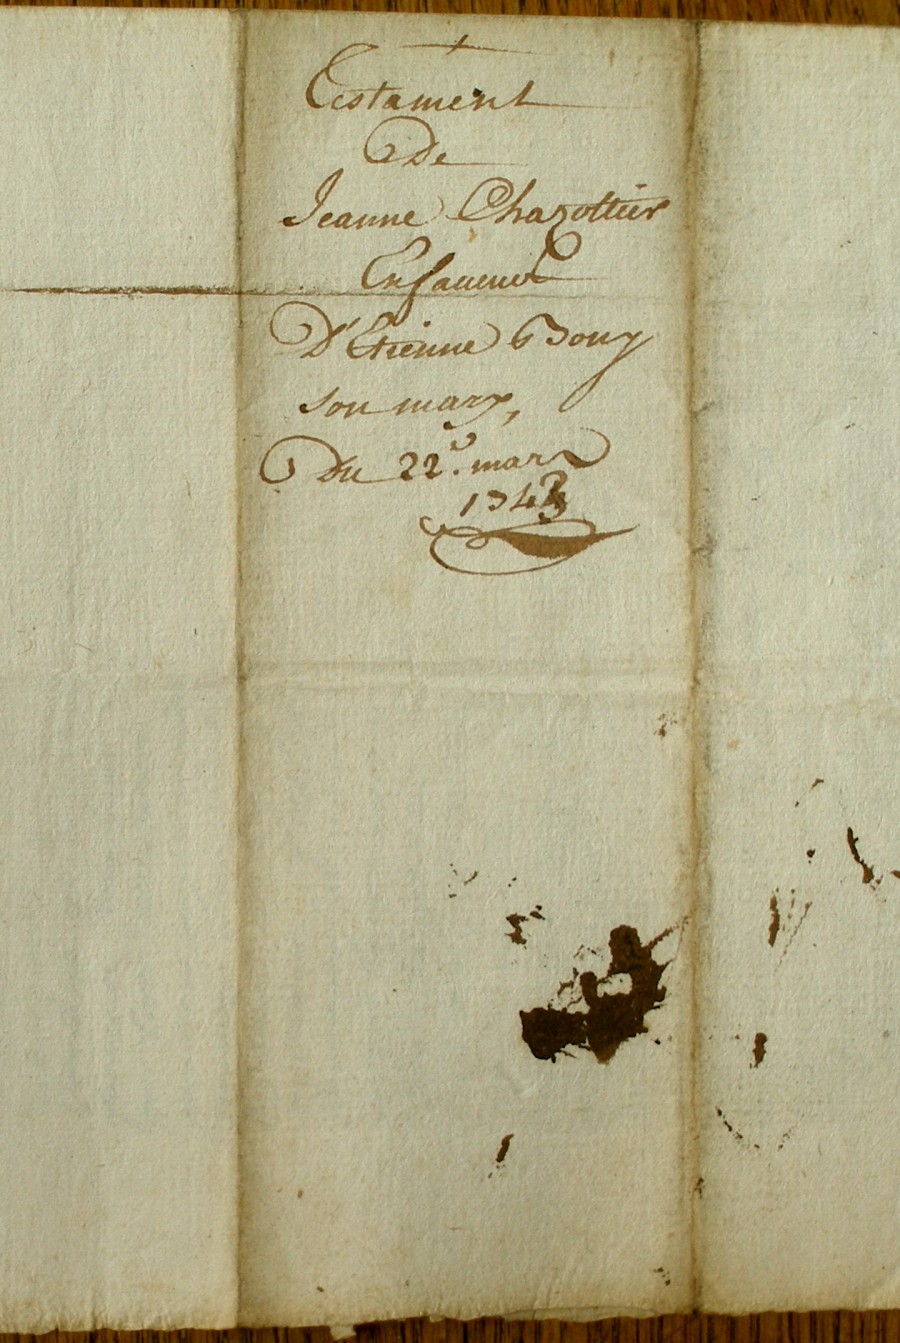 Testament
De
Jeanne Chazottier
En faueur
D'Etienne Bouy
son mary,
Du 22e. mars